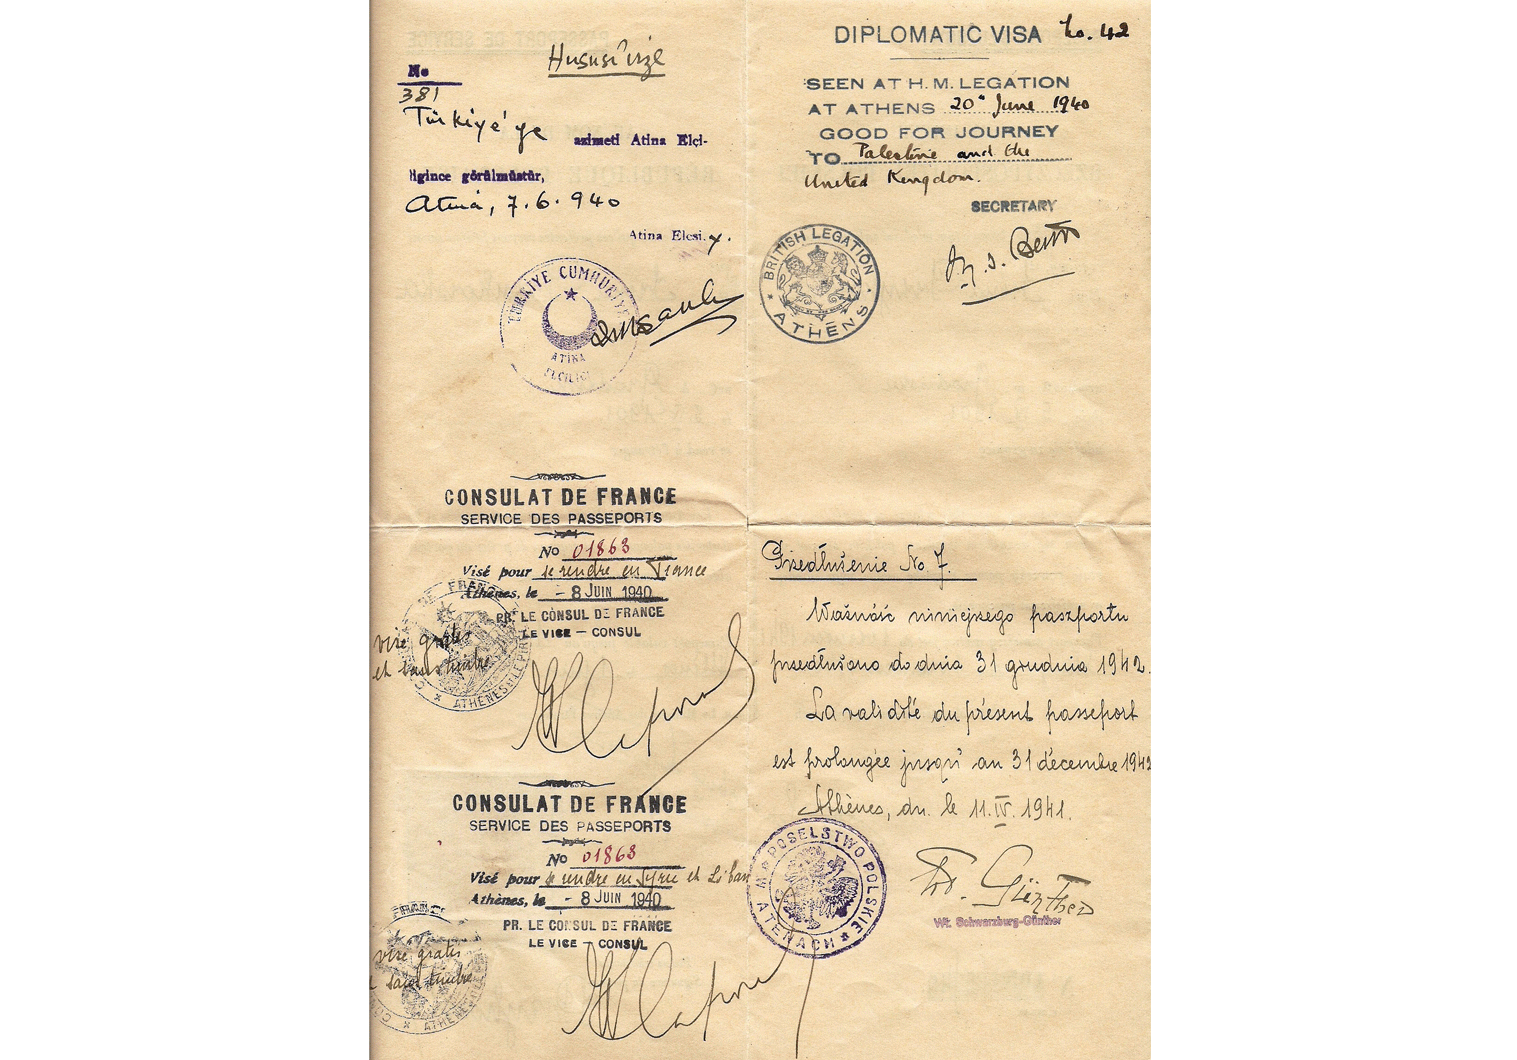 Hususî vize
No
381
Türkiye'ye azimeti Atina Elçi-
liğince görülmüştür,
Atina, 7.6.940
Atina Elçisi y.
TÜRKİYE CUMHURİYETİ
ATİNA
ELÇİLİĞİ
DIPLOMATIC VISA No. 42
SEEN AT H. M. LEGATION
AT ATHENS 20th June 1940
GOOD FOR JOURNEY
TO Palestine and the
United Kingdom.
SECRETARY
BRITISH LEGATION
ATHENS
CONSULAT DE FRANCE
SERVICE DES PASSEPORTS
No 01863
Visé pour se rendre en France
Athènes, le - 8 JUIN 1940
PR. LE CONSUL DE FRANCE
LE VICE - CONSUL
visé gratis
et sans timbre
DE FRANCE
ATHÈNES
CONSULAT DE FRANCE
SERVICE DES PASSEPORTS
No 01863
Visé pour se rendre en Syrie et Liban
Athènes, le - 8 JUIN 1940
PR. LE CONSUL DE FRANCE
LE VICE - CONSUL
visé gratis
sans timbre
FRANCE
ATHÈNES
Przedłużenie No 7.
Ważność niniejszego paszportu
przedłużono do dnia 31 grudnia 1942.
La validité du présent passeport
est prolongée jusqu'au 31 décembre 1942
Athènes, du. le 11.IV.1941.
POSELSTWO POLSKIE
W ATENACH
Wł. Günther
Wł. Schwarzburg-Günther